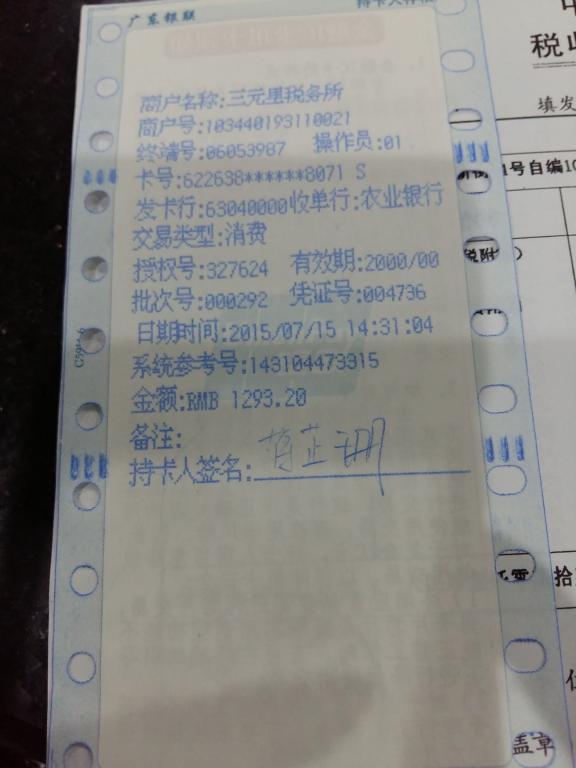 广东银联
商户名称:三元里税务所
商户号:103440193110021
终端号:06053987 操作员:01
卡号:622638******8071 S
发卡行:63040000收单行:农业银行
交易类型:消费
授权号:327624 有效期:2000/00
批次号:000292 凭证号:004736
日期时间:2015/07/15 14:31:04
系统参考号:143104473315
金额:RMB 1293.20
备注:
持卡人签名:
税收
填发
号自编10
税附
拾
盖章